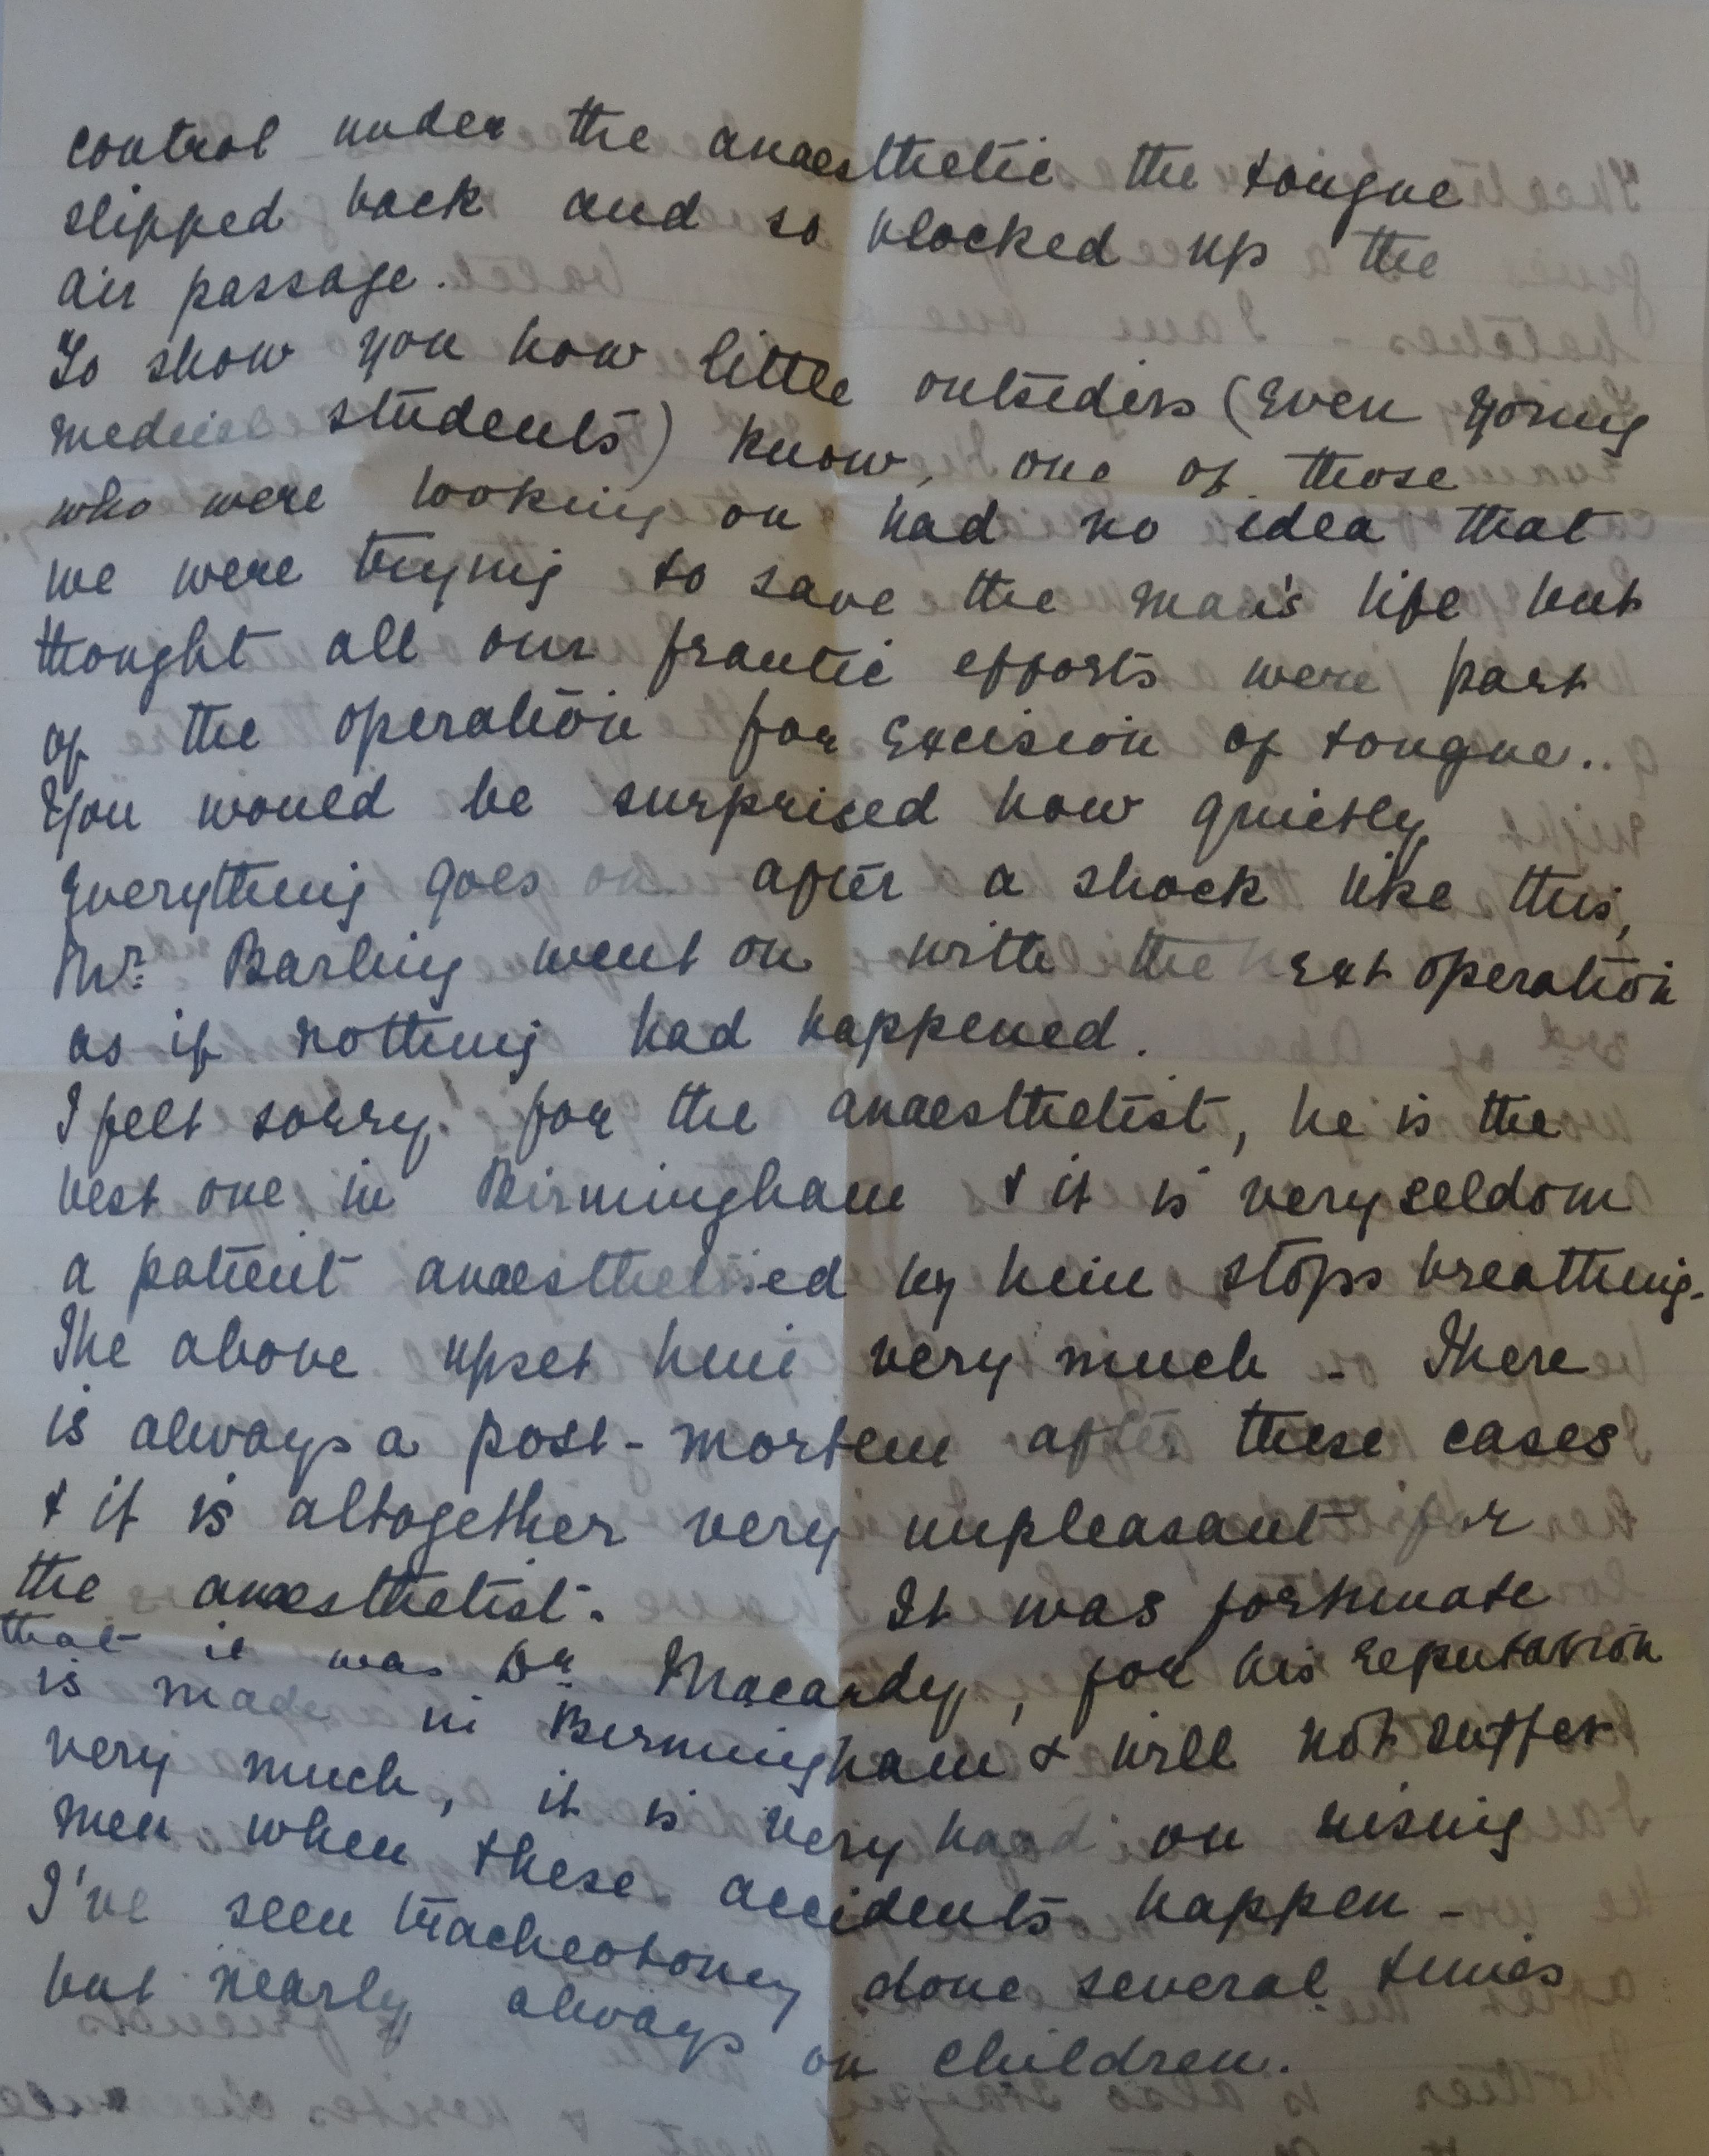 control under the anaesthetic the tongue
slipped back and so blocked up the
air passage.
To show you how little outsiders (even young
medical students) know, one of those
who were looking on had no idea that
we were trying to save the man's life but
thought all our frantic efforts were part
of the operation for excision of tongue..
You would be surprised how quietly
everything goes on after a shock like this,
Mr. Barling went on with the ext operation
as if nothing had happened.
I felt sorry for the anaesthetist, he is the
best one in Birmingham & it is very seldom
a patient anaesthetised by him stops breathing.
The above upset him very much - There
is always a post-mortem after these cases
& it is altogether very unpleasant for
the anaesthetist. It was fortunate
that it was Dr Macardy, for his reputation
is made in Birmingham & will not suffer
very much, it is very hard on rising
men when these accidents happen -
I've seen tracheotomy done several times
but nearly always on children.